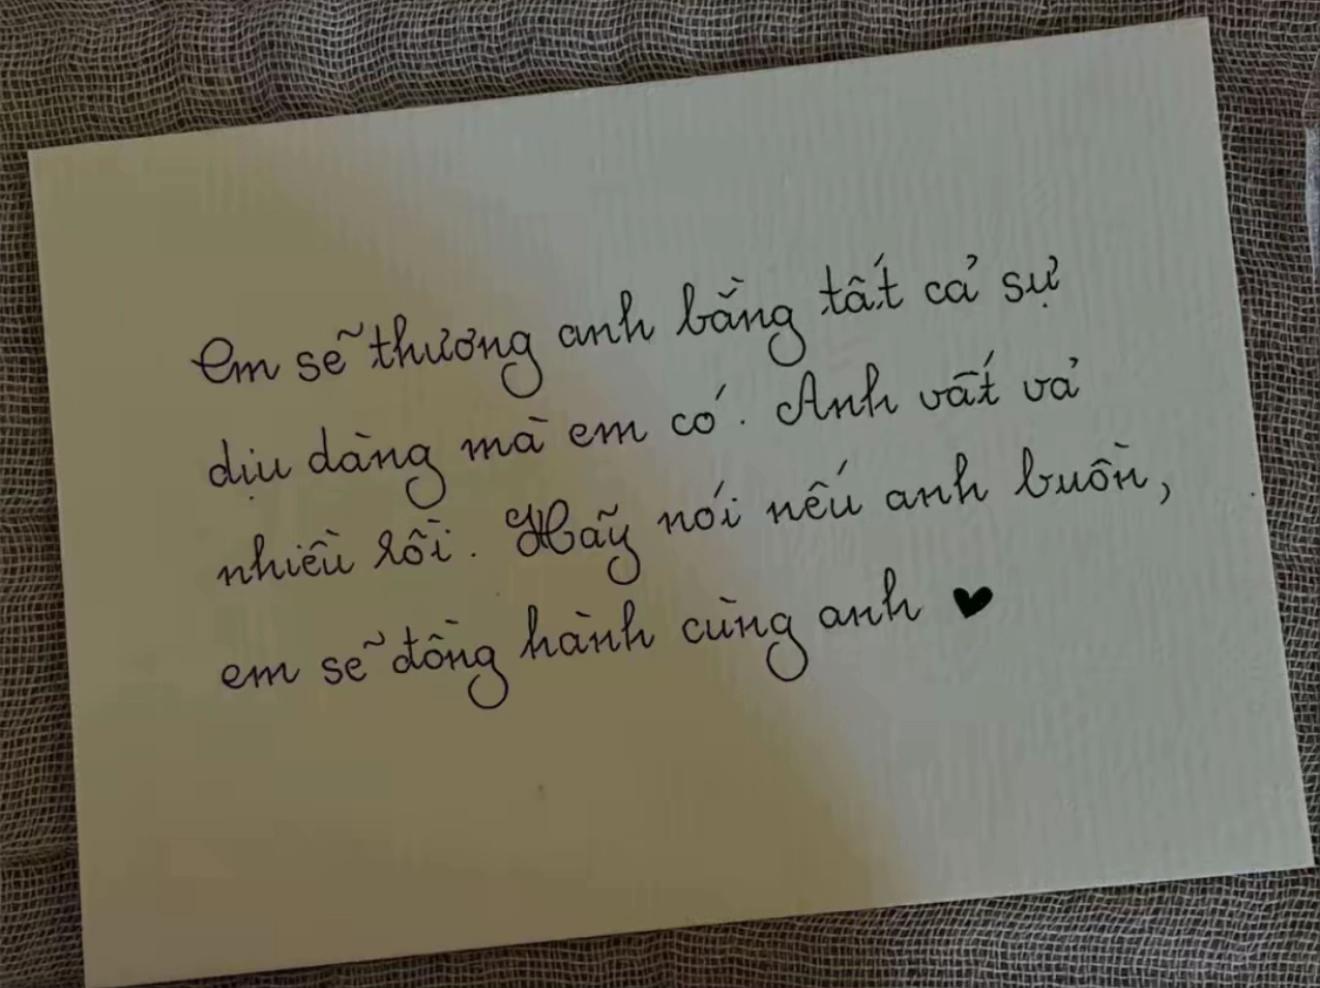 Em sẽ thương anh bằng tất cả sự
dịu dàng mà em có. Anh vất vả
nhiều rồi. Hãy nói nếu anh buồn,
em sẽ đồng hành cùng anh ♥